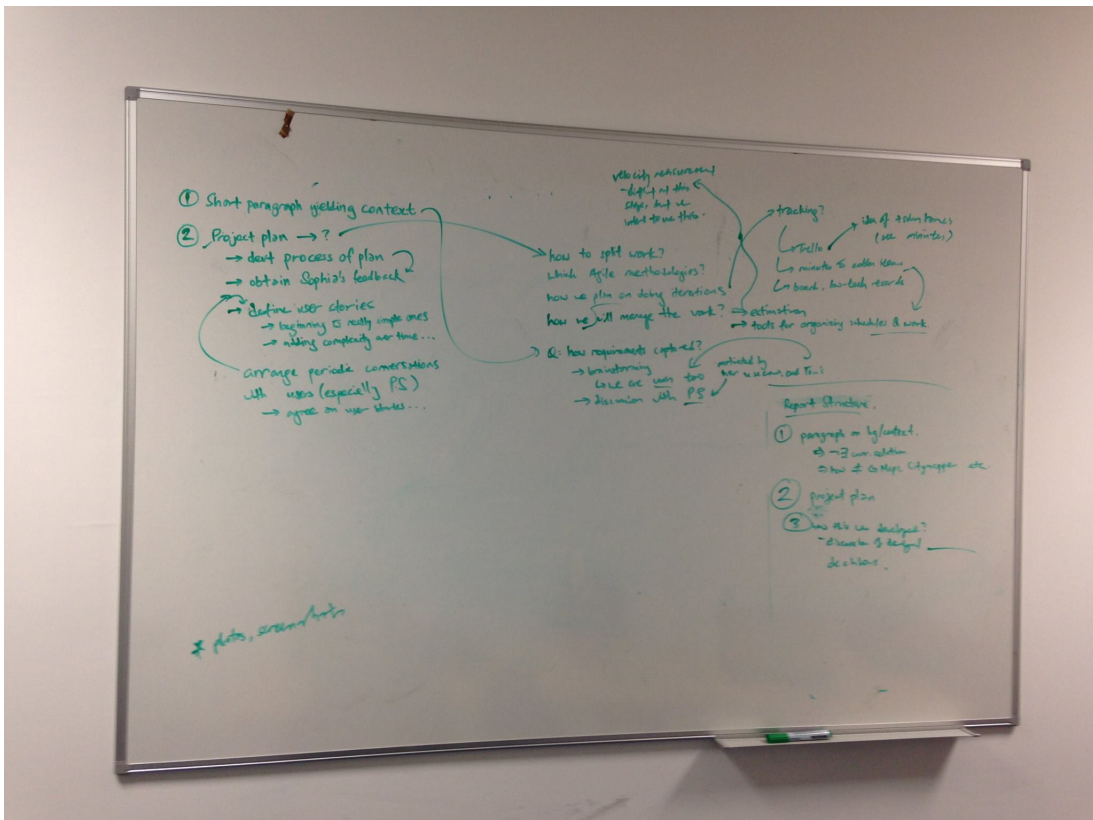 ① Short paragraph yielding context
② Project plan → ?
→ devt process of plan
→ obtain Sophia's feedback
→ define user stories
→ beginning to really simple ones
→ adding complexity over time...
arrange periodic conversations
with users (especially PS)
→ agree on user stories...
* photos, screenshots
velocity measurement
- difficult at this
stage, but we
intend to use this.
how to split work?
which Agile methodologies?
how we plan on doing iterations
how we will manage the work? → estimation
→ tools for organising schedules & work.
Q: how requirements captured?
→ brainstorming
↳ we are users too
→ discussion with PS
tracking?
↳ Trello
↳ minutes to
↳ board, low-tech records
idea of
(see minutes)
Report Structure.
① paragraph on bg/context.
⇒ ¬∃ curr. solution
⇒ how ≠ G Maps, Citymapper etc.
② project plan
③ how this was developed?
- discussion of design
decisions.